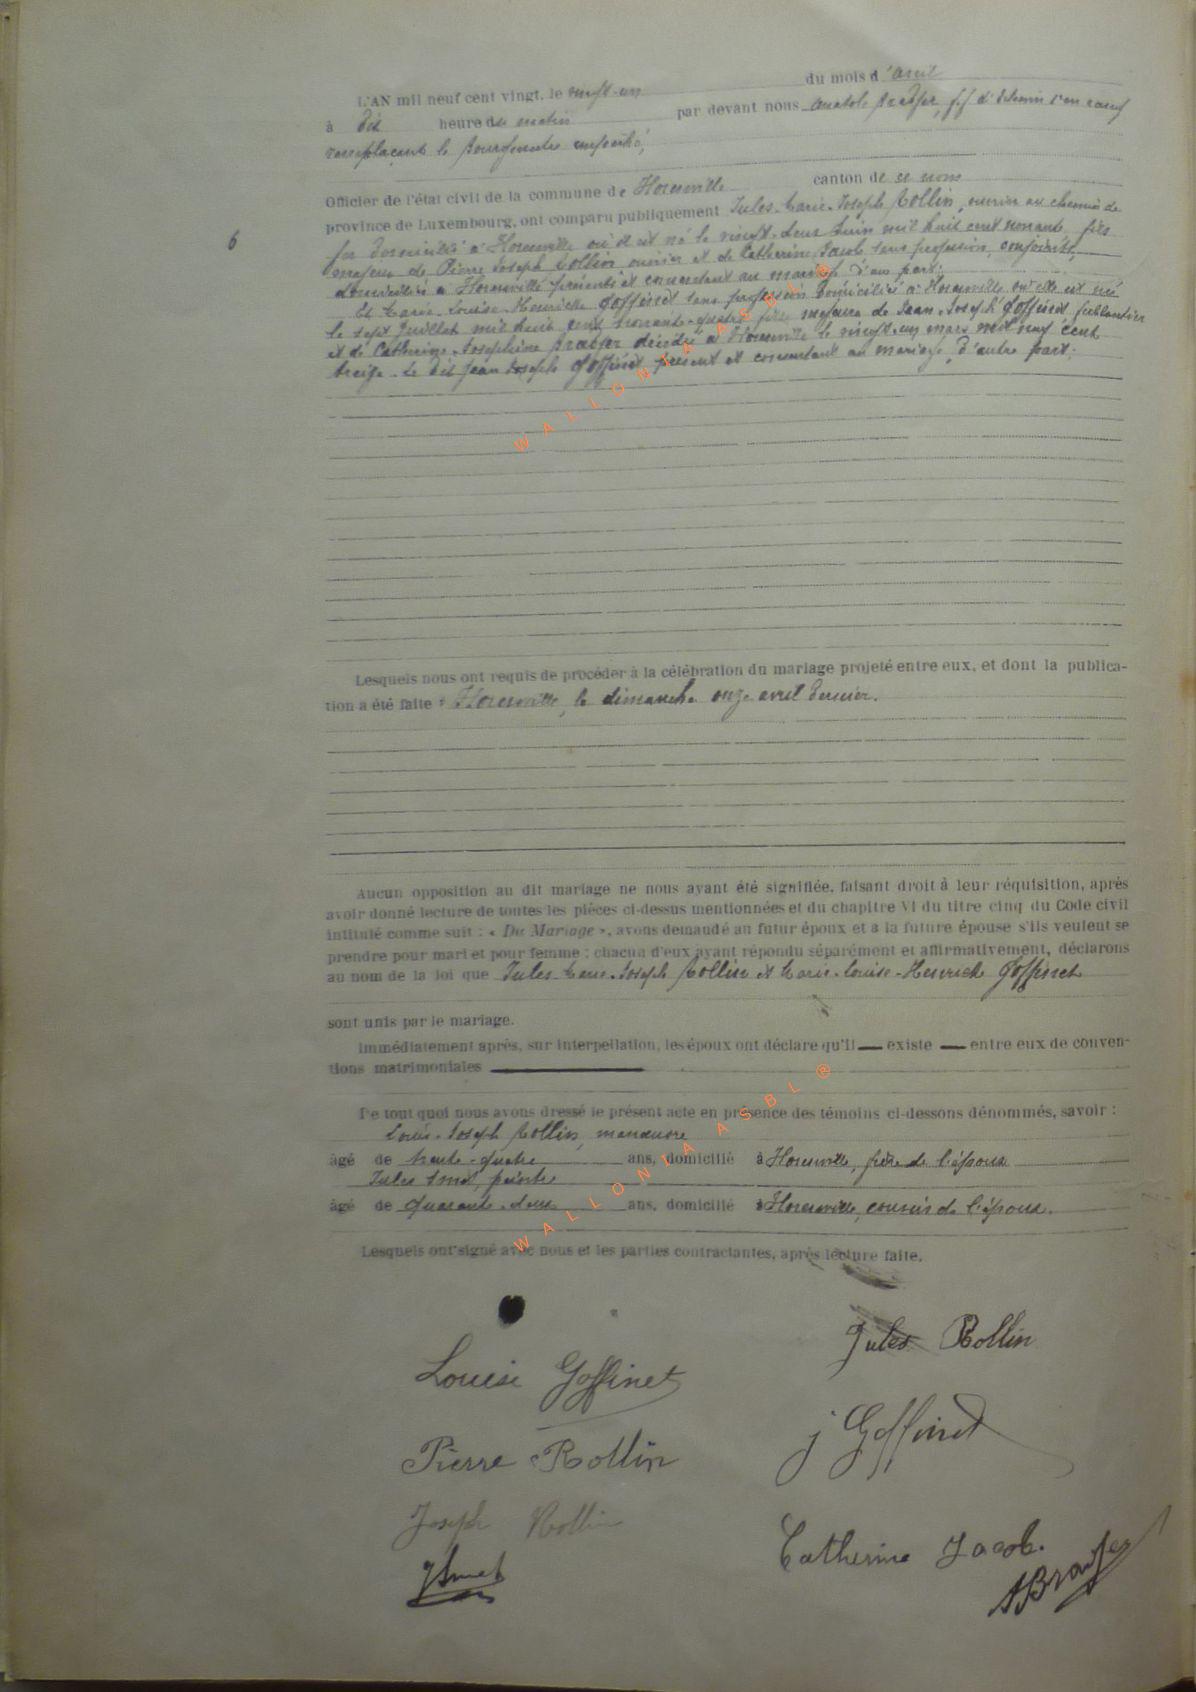 L'AN mil neuf cent vingt, le vingt-un du mois d'avril
à dix heure du matin par devant nous Anatole f.f d'Echevin
remplaçant le Bourgmestre empêché,
Officier de l'état civil de la commune de canton de
province de Luxembourg, ont comparu publiquement Jules-Marie-Joseph Rollin, ouvrier au chemin de
6
fer domicilié à où il est né le vingt-deux Juin mil huit cent nonante, fils
majeur de Pierre Joseph Rollin ouvrier et de Catherine Jacob sans profession, conjoints,
domiciliés à présents et consentant au mariage d'une part:
Et Marie-Louise-Henriette Goffinet sans profession domiciliée à où elle est née
le sept Juillet mil huit cent nonante-quatre fille majeure de Jean-Joseph Goffinet ferblantier
et de Catherine-Josephine décédée à le vingt-un mars mil neuf cent
treize. Le dit Jean Joseph Goffinet présent et consentant au mariage, d'autre part:
Lesquels nous ont requis de procéder à la célébration du mariage projeté entre eux, et dont la publica-
tion a été faite à le dimanche onze avril dernier.
Aucun opposition au dit mariage ne nous ayant été signifiée, faisant droit à leur réquisition, après
avoir donné lecture de toutes les pièces ci-dessus mentionnées et du chapitre VI du titre cinq du Code civil
intitulé comme suit : « Du Mariage », avons demandé au futur époux et à la future épouse s'ils veulent se
prendre pour mari et pour femme ; chacun d'eux ayant répondu séparément et affirmativement, déclarons
au nom de la loi que Jules-Marie-Joseph Rollin et Marie-Louise-Henriette Goffinet
sont unis par le mariage.
Immédiatement après, sur interpellation, les époux ont déclaré qu'il — existe — entre eux de conven-
tions matrimoniales
De tout quoi nous avons dressé le présent acte en présence des témoins ci-dessons dénommés, savoir :
Louis-Joseph Rollin, manœuvre
âgé de trente-quatre ans, domicilié à frère de l'époux
Jules Smet, peintre
âgé de quarante-deux ans, domicilié à cousin de l'époux.
Lesquels ont signé avec nous et les parties contractantes, après lecture faite.
Jules Rollin
Louise Goffinet
j Goffinet
Pierre Rollin
Joseph Rollin
Catherine Jacob.
JSmet
WALLONIA ASBL @
WALLONIA ASBL @